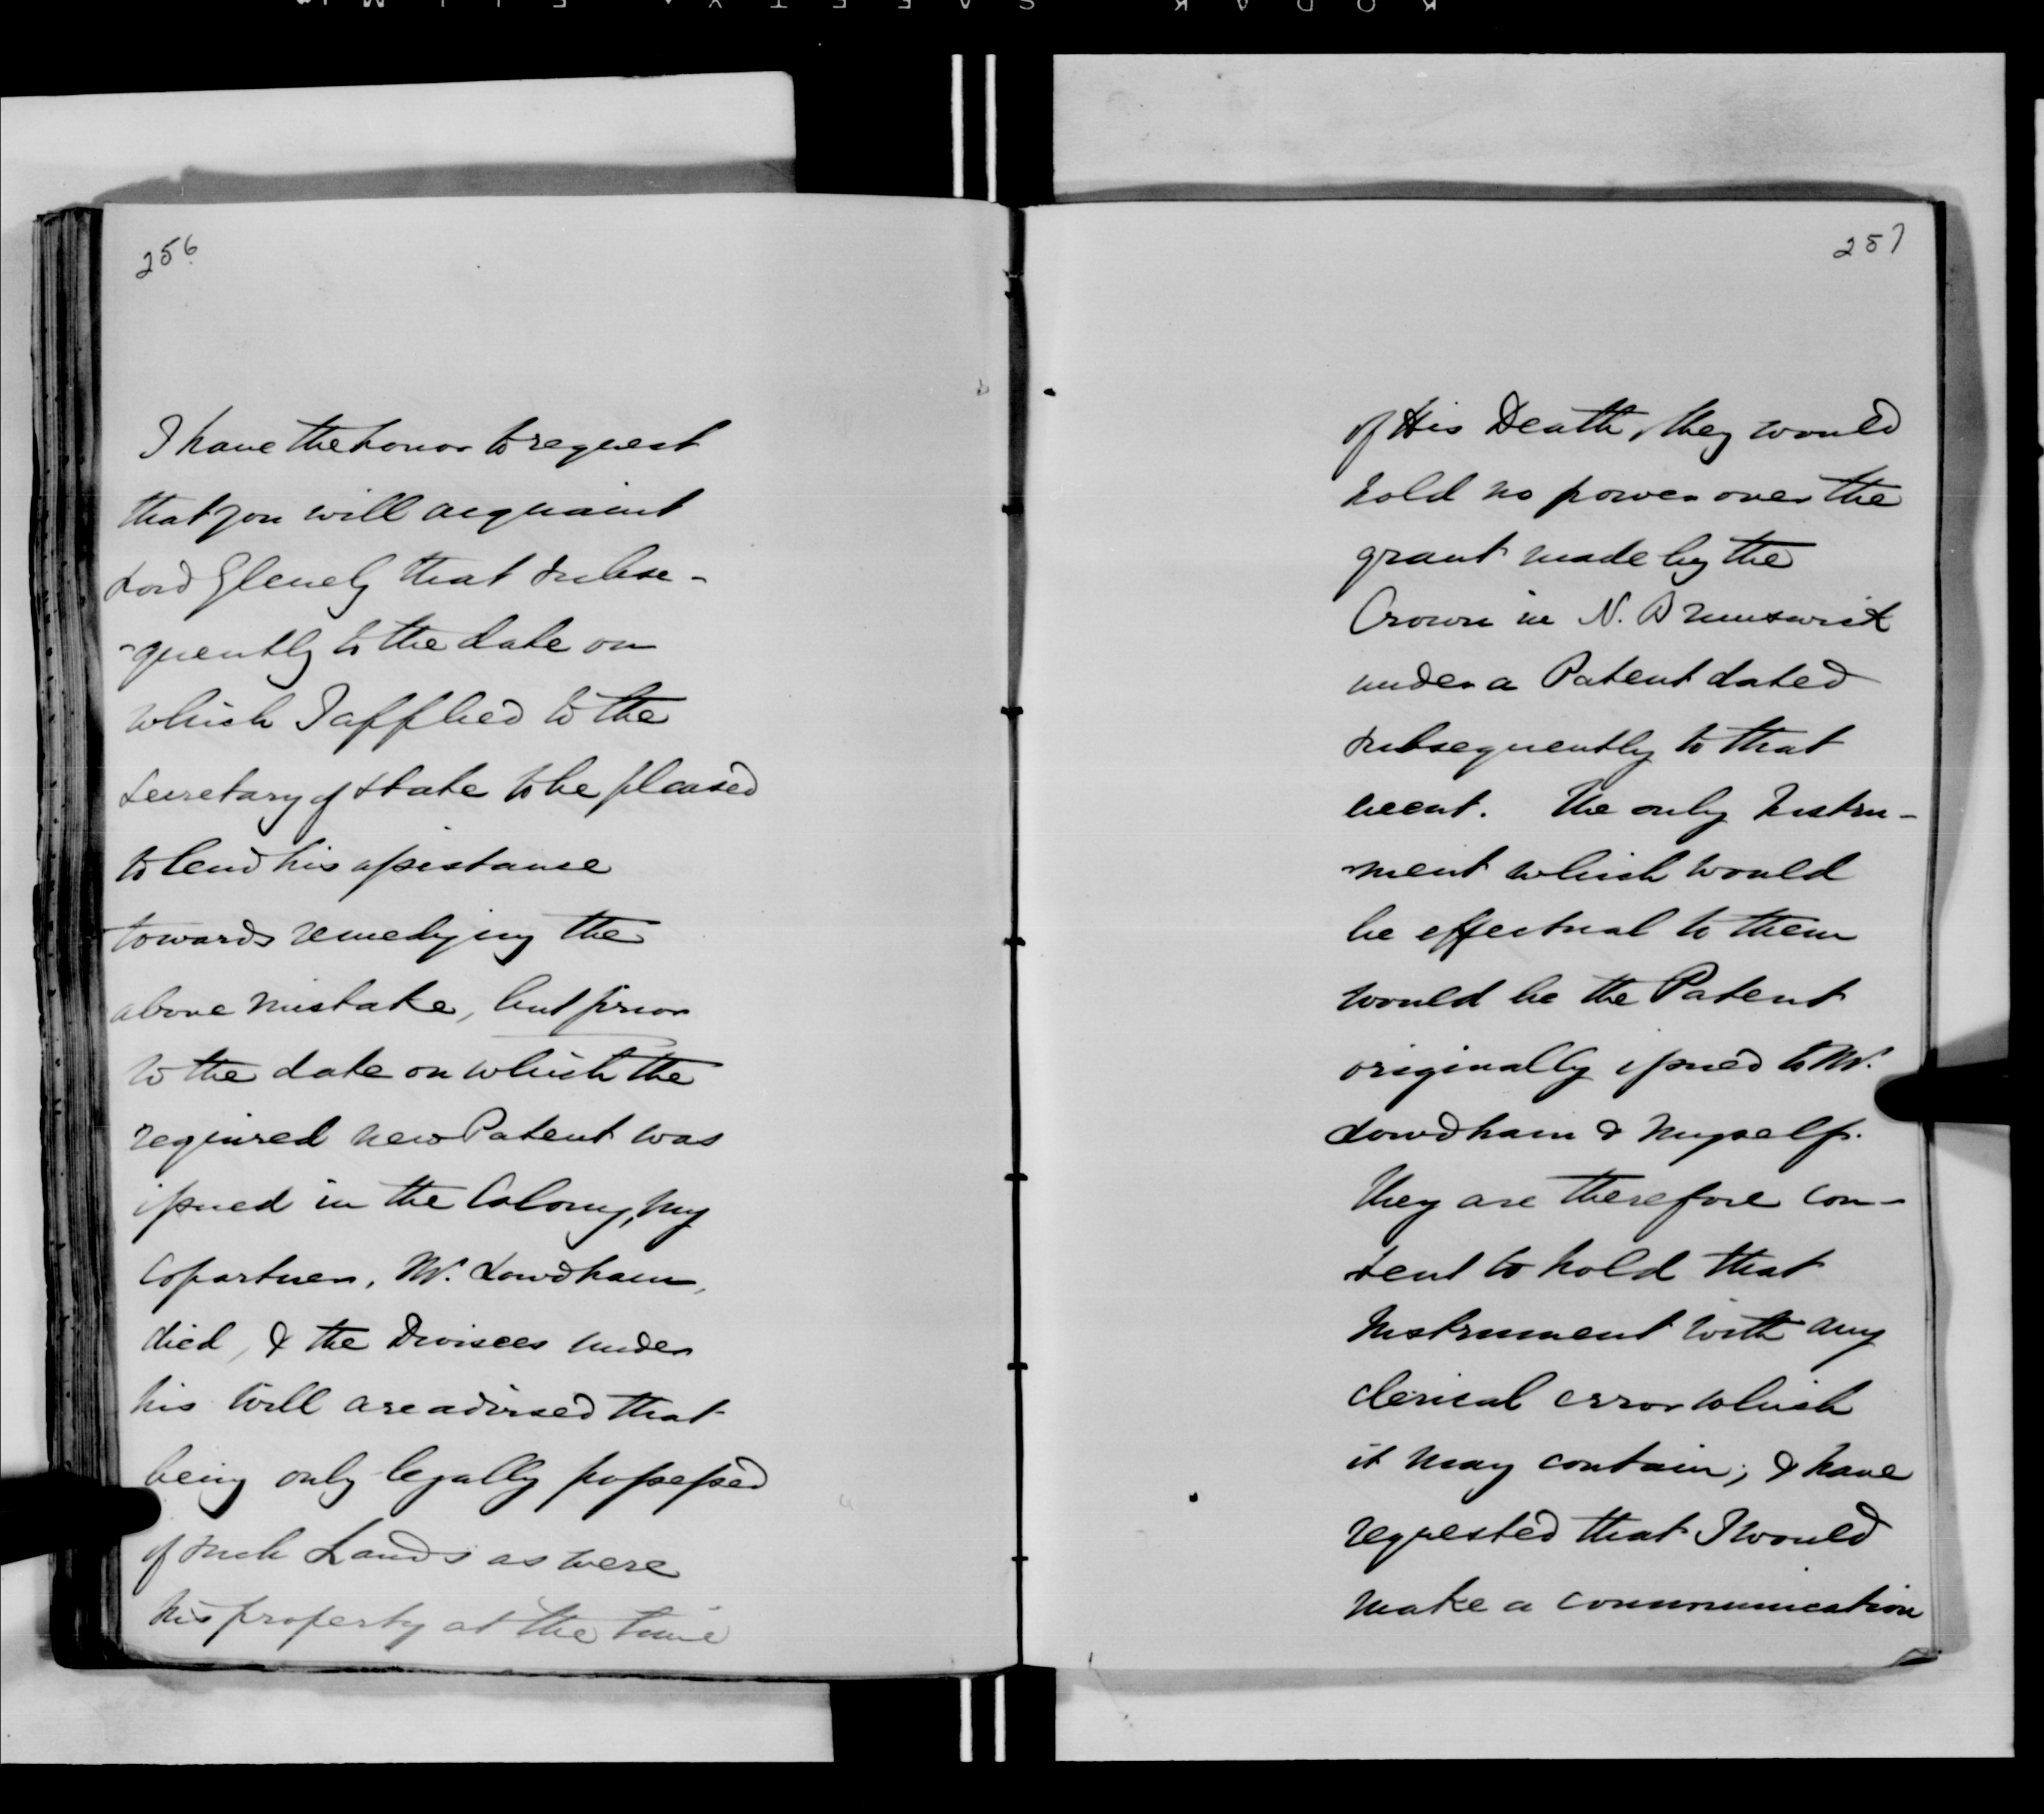 256
I have the honor to request
that you will acquaint
Lord Glenelg that subse-
-quently to the date on
which I applied to the
Secretary of State to be pleased
to lend his assistance
towards remedying the
above mistake, but prior
to the date on which the
required new Patent was
issued in the Colony, my
Copartner, Mr. Lowdham,
died, & the Devisees under
his Will are advised that
being only legally possessed
of such Lands as were
his property at the time
257
of His Death, they would
hold no power over the
grant made by the
Crown in N. Brunswick
under a Patent dated
subsequently to that
event. The only Instru-
-ment which would
be effectual to them
would be the Patent
originally issued to Mr.
Lowdham & myself.
They are therefore con-
-tent to hold that
Instrument with any
clerical error which
it may contain; & have
requested that I would
make a communication